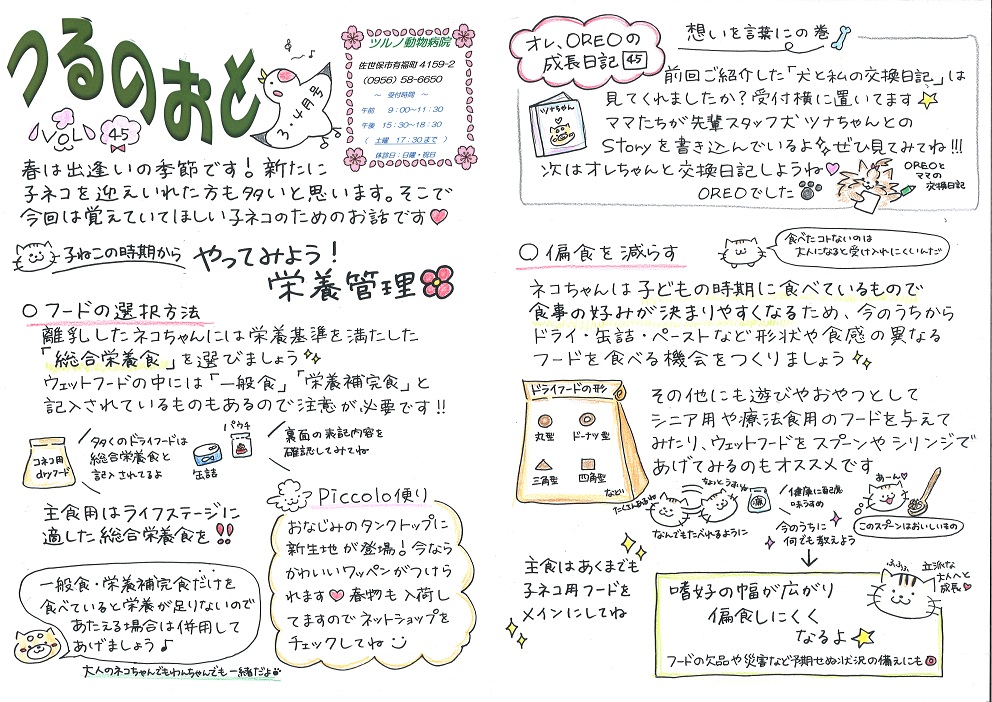 つるのおと
VOL 45
3.4月号
ツルノ動物病院
佐世保市有福町 4159-2
(0956) 58-6650
～ 受付時間 ～
午前 9:00～11:30
午後 15:30～18:30
( 土曜 17:30まで )
休診日:日曜・祝日
春は出逢いの季節です！新たに
子ネコを迎えいれた方も多いと思います。そこで
今回は覚えていてほしい子ネコのためのお話です
子ねこの時期から やってみよう！
栄養管理
○フードの選択方法
離乳したネコちゃんには栄養基準を満たした
「総合栄養食」を選びましょう
ウェットフードの中には「一般食」「栄養補完食」と
記入されているものもあるので注意が必要です!!
コネコ用
dryフード
多くのドライフードは
総合栄養食と
記入されてるよ
缶詰
パウチ
裏面の表記内容を
確認してみてね
主食用はライフステージに
適した総合栄養食を!!
一般食・栄養補完食だけを
食べていると栄養が足りないので
あたえる場合は併用して
あげましょう♪
大人のネコちゃんでもわんちゃんでも一緒だよ
Piccolo便り
おなじみのタンクトップに
新生地が登場！今なら
かわいいワッペンがつけら
れます 春物も入荷し
てますのでネットショップを
チェックしてね
オレ、OREOの
成長日記 45
想いを言葉にの巻
ツナちゃん
前回ご紹介した「犬と私の交換日記」は
見てくれましたか？受付横に置いてます
ママたちが先輩スタッフ犬ツナちゃんとの
Storyを書き込んでいるよ ぜひ見てみてね!!!
次はオレちゃんと交換日記しようね
OREOでした
OREOと
ママの
交換日記
○偏食を減らす
食べたコトないのは
大人になると受け入れにくいんだ
ネコちゃんは子どもの時期に食べているもので
食事の好みが決まりやすくなるため、今のうちから
ドライ・缶詰・ペーストなど形状や食感の異なる
フードを食べる機会をつくりましょう
ドライフードの形
丸型
ドーナツ型
三角型
四角型
など
その他にも遊びやおやつとして
シニア用や療法食用のフードを与えて
みたり、ウェットフードをスプーンやシリンジで
あげてみるのもオススメです
なんでもたべれるように
健康に配慮
味うすめ
あーん
このスプーンはおいしいもの
今のうちに
何でも教えよう
主食はあくまでも
子ネコ用フードを
メインにしてね
嗜好の幅が広がり
偏食しにくく
なるよ
フードの欠品や災害など予期せぬ状況の備えにも
ふふふ
立派な
大人へと
成長